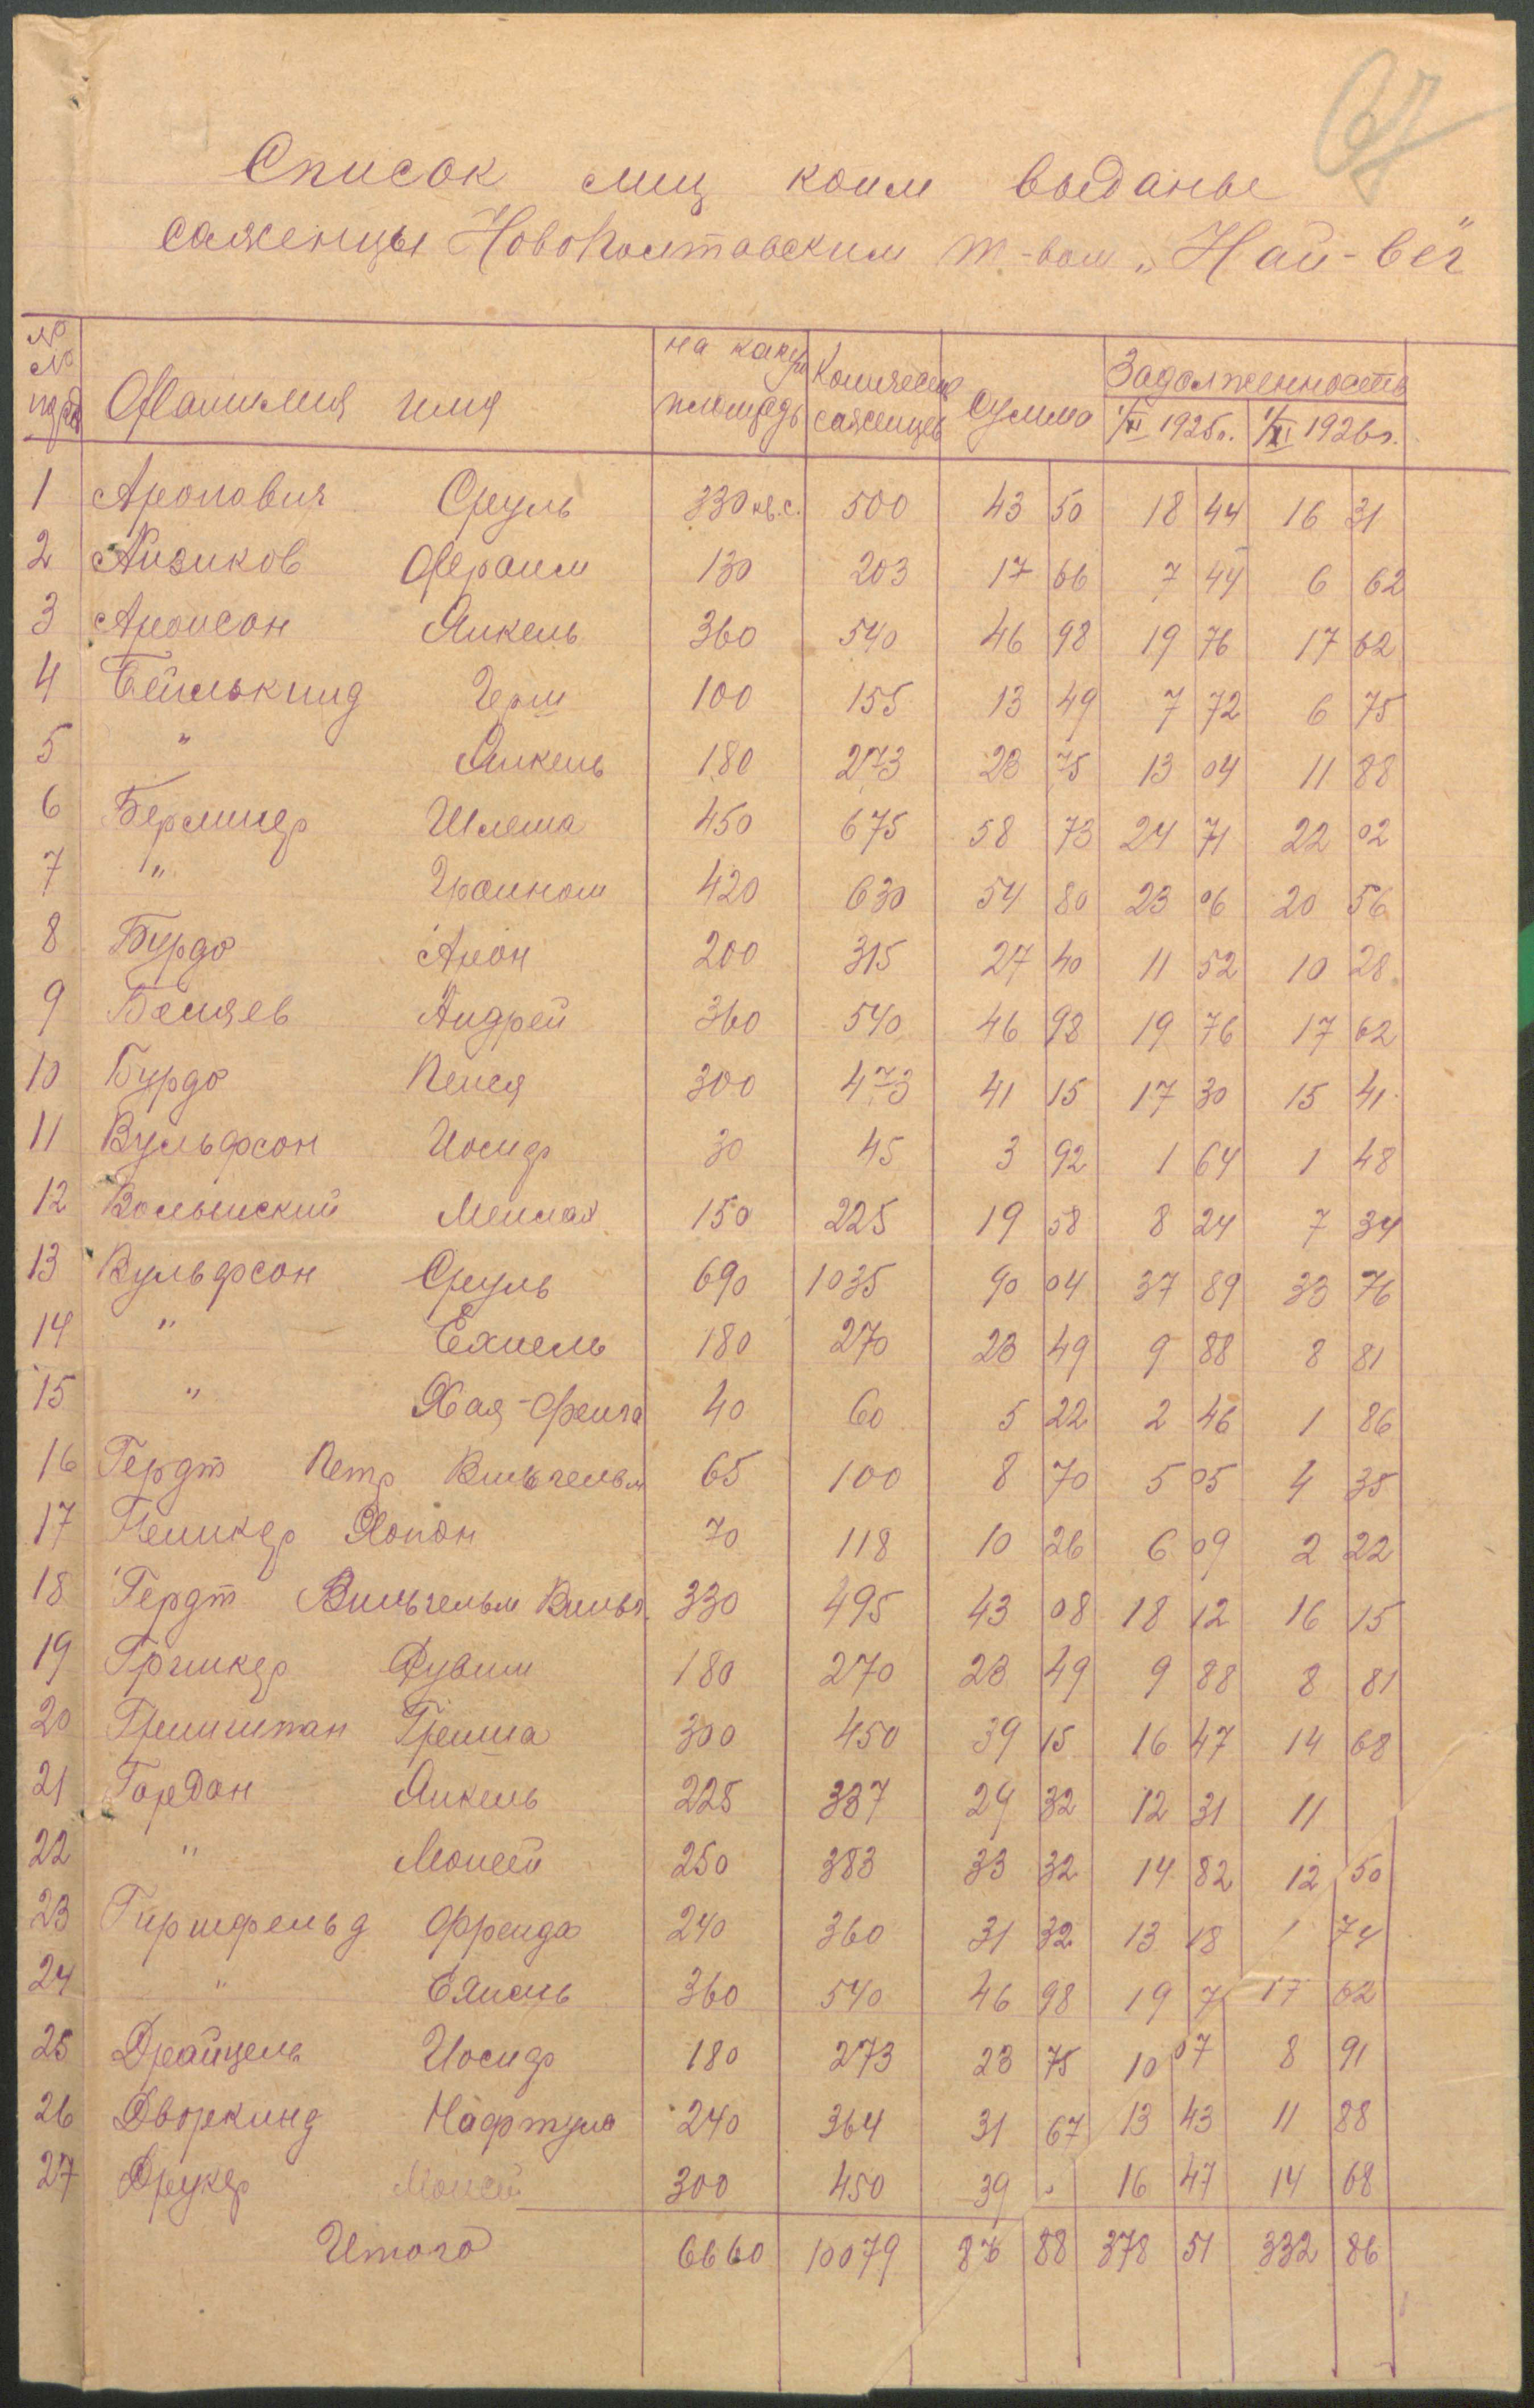 67
Список лиц коим выданы
саженцы Новополтавским т-вом „Най-вег"
№ № поряд Фамилия имя на какую площадь Количество саженцев Сумма Задолженность
1/XI 1925г. 1/XI 1926г.
1 Аронович Сруль 330 кв.с. 500 43 50 18 44 16 31
2 Айзиков Эфраим 130 203 17 66 7 44 6 62
3 Аронсон Янкель 360 540 46 98 19 76 17 62
4 Бейлькинд Герш 100 155 13 49 7 72 6 75
5 " Янкель 180 273 23 75 13 04 11 88
6 Берлинер Шлема 450 675 58 73 24 71 22 02
7 " 420 630 54 80 23 06 20 56
8 Бурдо Арон 200 315 27 40 11 52 10 28
9 Беляев Андрей 360 540 46 98 19 76 17 62
10 Бурдо Пейся 300 473 41 15 17 30 15 41
11 Вульфсон Иосиф 30 45 3 92 1 64 1 48
12 Волынский Мейлах 150 225 19 58 8 24 7 34
13 Вульфсон Сруль 690 1035 90 04 37 89 33 76
14 " Ехиель 180 270 23 49 9 88 8 81
15 " Хая-Фейга 40 60 5 22 2 46 1 86
16 Гердт Петр Вильгельм 65 100 8 70 5 05 4 35
17 Хонон 70 118 10 26 6 09 2 22
18 Гердт Вильгельм Вильг. 330 495 43 08 18 12 16 15
19 Дувид 180 270 23 49 9 88 8 81
20 300 450 39 15 16 47 14 68
21 Гордон Янкель 225 337 29 32 12 31 11
22 " Мойсей 250 383 33 32 14 82 12 50
23 Гиршфельд Фрейда 240 360 31 32 13 18 1 74
24 " 360 540 46 98 19 7 17 62
25 Драйцель Иосиф 180 273 23 75 10 07 8 91
26 Дворкинд Нафтула 240 364 31 67 13 43 11 88
27 Друкер Мойсей 300 450 39 16 47 14 68
Итого 6660 10079 88 378 51 332 86